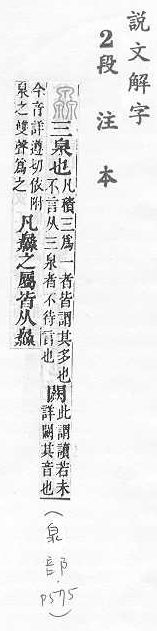 說文解字
2段注本
灥 三泉也 凡積三爲一者皆謂其多也
不言从三泉者不待言也 闕 此謂讀若未
詳闕其音也
今音詳遵切依附
泉之雙聲爲之 凡灥之屬皆从灥
(泉部.P575)